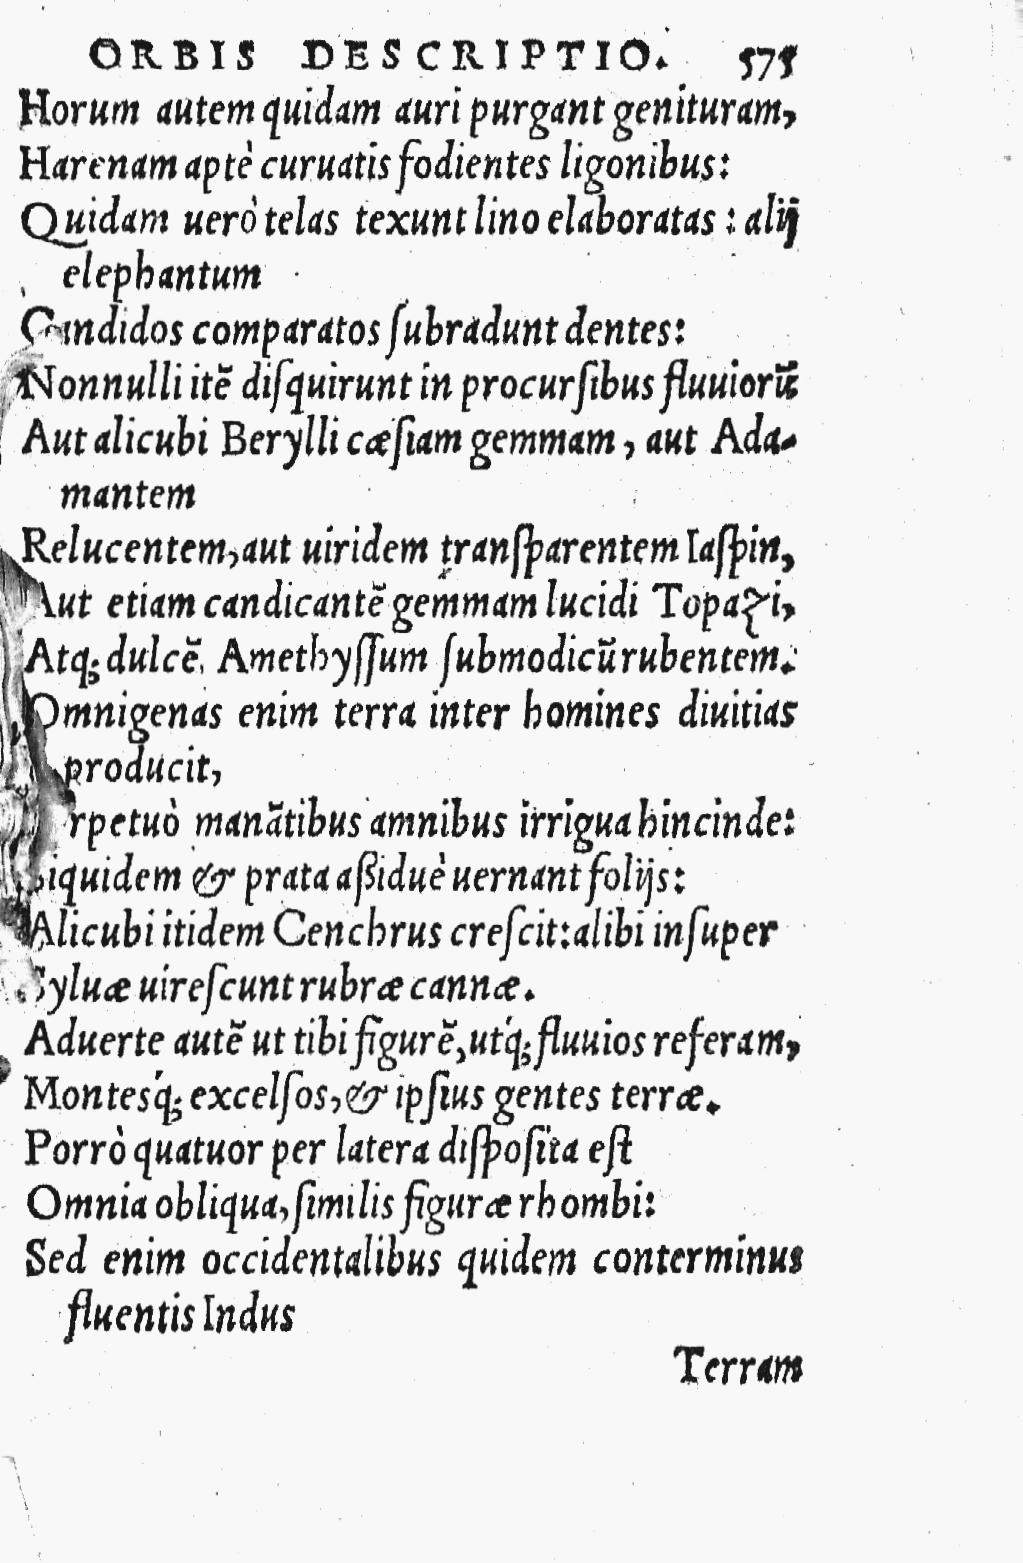 ORBIS DESCRIPTIO. 575
Horum autem quidam auri purgant genituram,
Harenam aptè curuatis fodientes ligonibus:
Quidam uerò telas texunt lino elaboratas : alij
elephantum
Candidos comparatos ſubradunt dentes:
Nonnulli itē diſquirunt in procurſibus fluuiorū
Aut alicubi Berylli cæſiam gemmam, aut Ada-
mantem
Relucentem, aut uiridem tranſparentem Iaſpin,
Aut etiam candicantē gemmam lucidi Topazi,
Atq; dulcē Amethyſſum ſubmodicū rubentem.
Omnigenas enim terra inter homines diuitias
producit,
manātibus amnibus irrigua hincinde:
Siquidem & prata aßiduè uernant folijs:
Alicubi itidem Cenchrus creſcit: alibi inſuper
Syluæ uireſcunt rubræ cannæ.
Aduerte autē ut tibi figurē, utq́; fluuios referam,
Montesq́; excelſos, & ipſius gentes terræ.
Porrò quatuor per latera diſpoſita eſt
Omnia obliqua, ſimilis figuræ rhombi:
Sed enim occidentalibus quidem conterminus
fluentis Indus
Terram